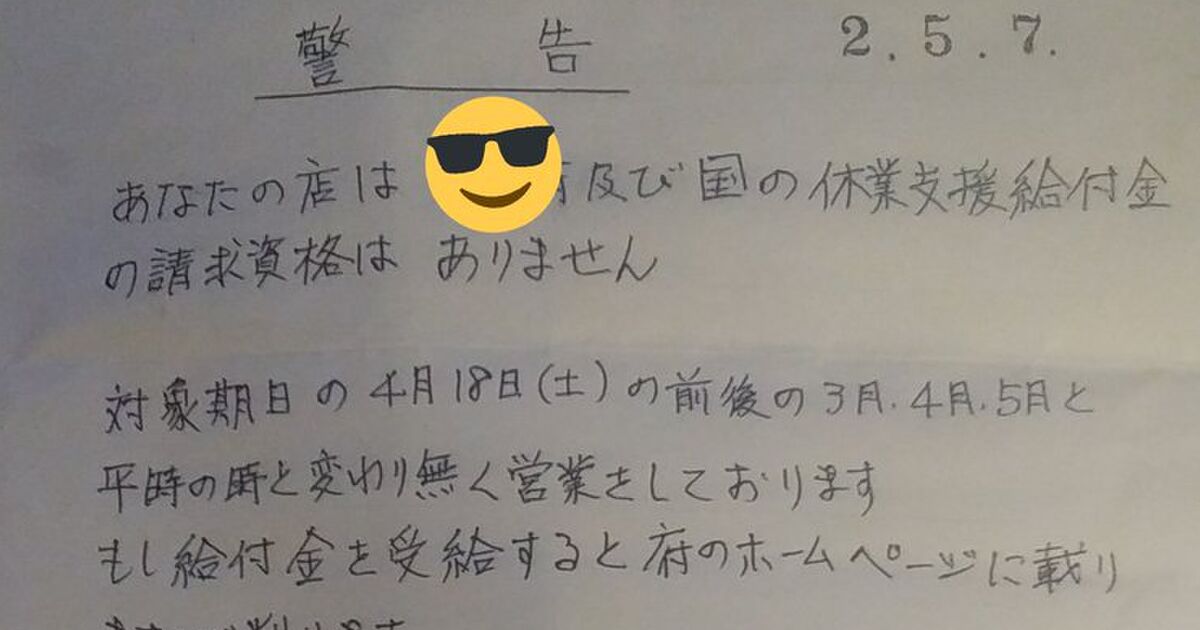 警告
2.5.7.
あなたの店は 及び国の休業支援給付金
の請求資格は ありません
対象期日の4月18日(土)の前後の3月.4月.5月と
平時の時と変わり無く営業をしております
もし給付金を受給すると府のホームページに載り